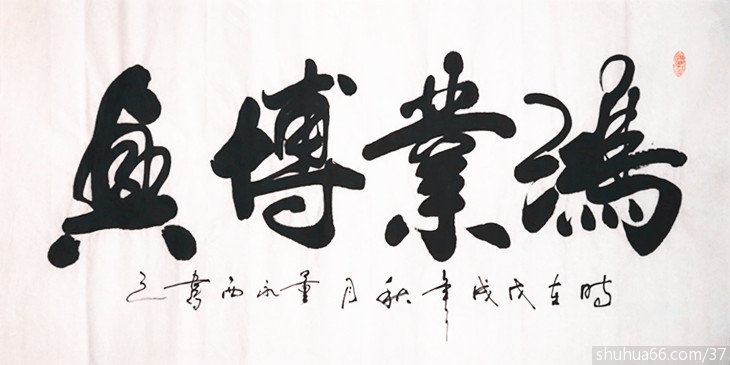 鴻業博興
時在戊戌年秋月董永西書之
shuhua66.com/37